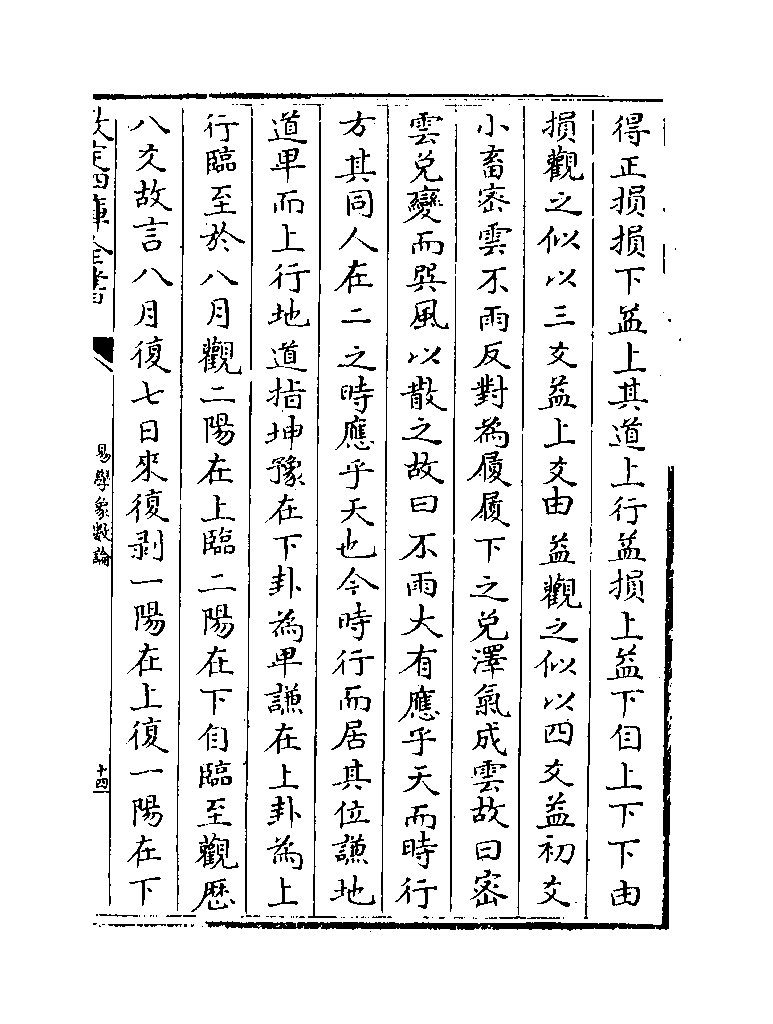 得正損損下益上其道上行益損上益下自上下下由
損觀之似以三爻益上爻由益觀之似以四爻益初爻
小畜宻雲不雨反對為履履下之兌澤氣成雲故曰宻
雲兌變而巽風以散之故曰不雨大有應乎天而時行
方其同人在二之時應乎天也今時行而居其位謙地
道卑而上行地道指坤豫在下卦為卑謙在上卦為上
行臨至於八月觀二陽在上臨二陽在下自臨至觀歴
八爻故言八月復七日來復剥一陽在上復一陽在下
欽定四庫全書
易學象數論
十四